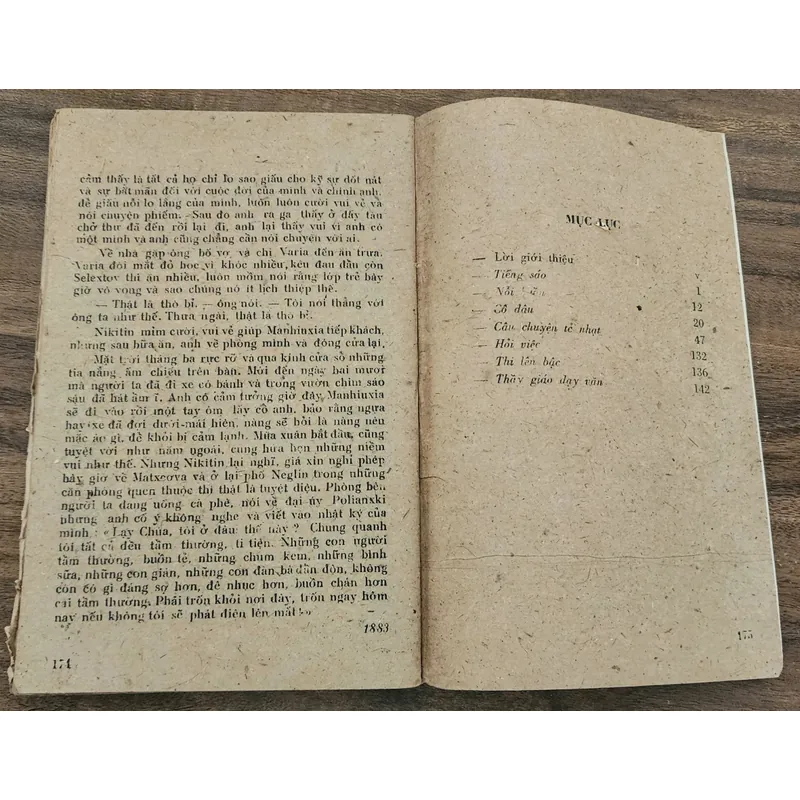 cảm thấy là tất cả họ chỉ lo sao giấu cho kỹ sự dốt nát
và sự bất mãn đối với cuộc đời của mình và chính anh,
để giấu nỗi lo lắng của mình, luôn luôn cười vui vẻ và
nói chuyện phiếm. Sau đo anh ra ga thấy ở đấy tàu
chở thư đã đến rồi lại đi, anh lại thấy vui vì anh có
một mình và anh cũng chẳng cần nói chuyện với ai.
Về nhà gặp ông bố vợ và chị Varia đến ăn trưa.
Varia đôi mắt đỏ hoe vì khóc nhiều, kêu đau đầu còn
Selextov thì ăn nhiều, luôn mồm nói rằng lớp trẻ bây
giờ vô vọng và sao chúng nó ít lịch thiệp thế.
— Thật là thô bỉ, — ông nói. — Tôi nói thẳng với
ông ta như thế. Thưa ngài, thật là thô bỉ.
Nikitin mỉm cười, vui vẻ giúp Manhinxia tiếp khách,
nhưng sau bữa ăn, anh về phòng mình và đóng cửa lại,
Mặt trời tháng ba rực rỡ và qua kính cửa sổ những
tia nắng ấm chiếu trên bàn. Mới đến ngày hai mươi
mà người ta đã đi xe có bánh và trong vườn chim sáo
sậu đã hát ầm ĩ. Anh có cảm tưởng giờ đây, Manhiuxia
sẽ đi vào rồi một tay ôm lấy cổ anh, bảo rằng ngựa
hay xe đã đợi dưới mái hiên, nàng sẽ hỏi là nàng nên
mặc áo gì, để khỏi bị cảm lạnh. Mùa xuân bắt đầu, cũng
tuyệt vời như năm ngoái, cung hứa hẹn những niềm
vui như thế. Nhưng Nikitin lại nghĩ, giá xin nghỉ phép
bây giờ về Matxcơva và ở lại phố Neglin trong những
căn phòng quen thuộc thì thật là tuyệt diệu. Phòng bên
người ta đang uống cà phê, nói về đại úy Polianxki
nhưng anh cố ý không nghe và viết vào nhật ký của
mình : « Lạy Chúa, tôi ở đâu thế này ? Chung quanh
tôi tất cả đều tầm thường, ti tiện. Những con người
tầm thường, buồn tẻ, những chùm kem, những bình
sữa, những con gián, những con đàn bà đần độn, không
còn có gì đáng sợ hơn, đê nhục hơn, buồn chán hơn
cái tầm thường. Phải trốn khỏi nơi đây, trốn ngay hôm
nay nếu không tôi sẽ phát điên lên mất! »
1883
174
MỤC LỤC
— Lời giới thiệu
— Tiếng sáo v
— Nỗi 1
— Cô dâu 12
— Câu chuyện tẻ nhạt 20
— Hồi việc 47
— Thi lên bậc 132
— Thầy giáo dạy văn 136
142
175